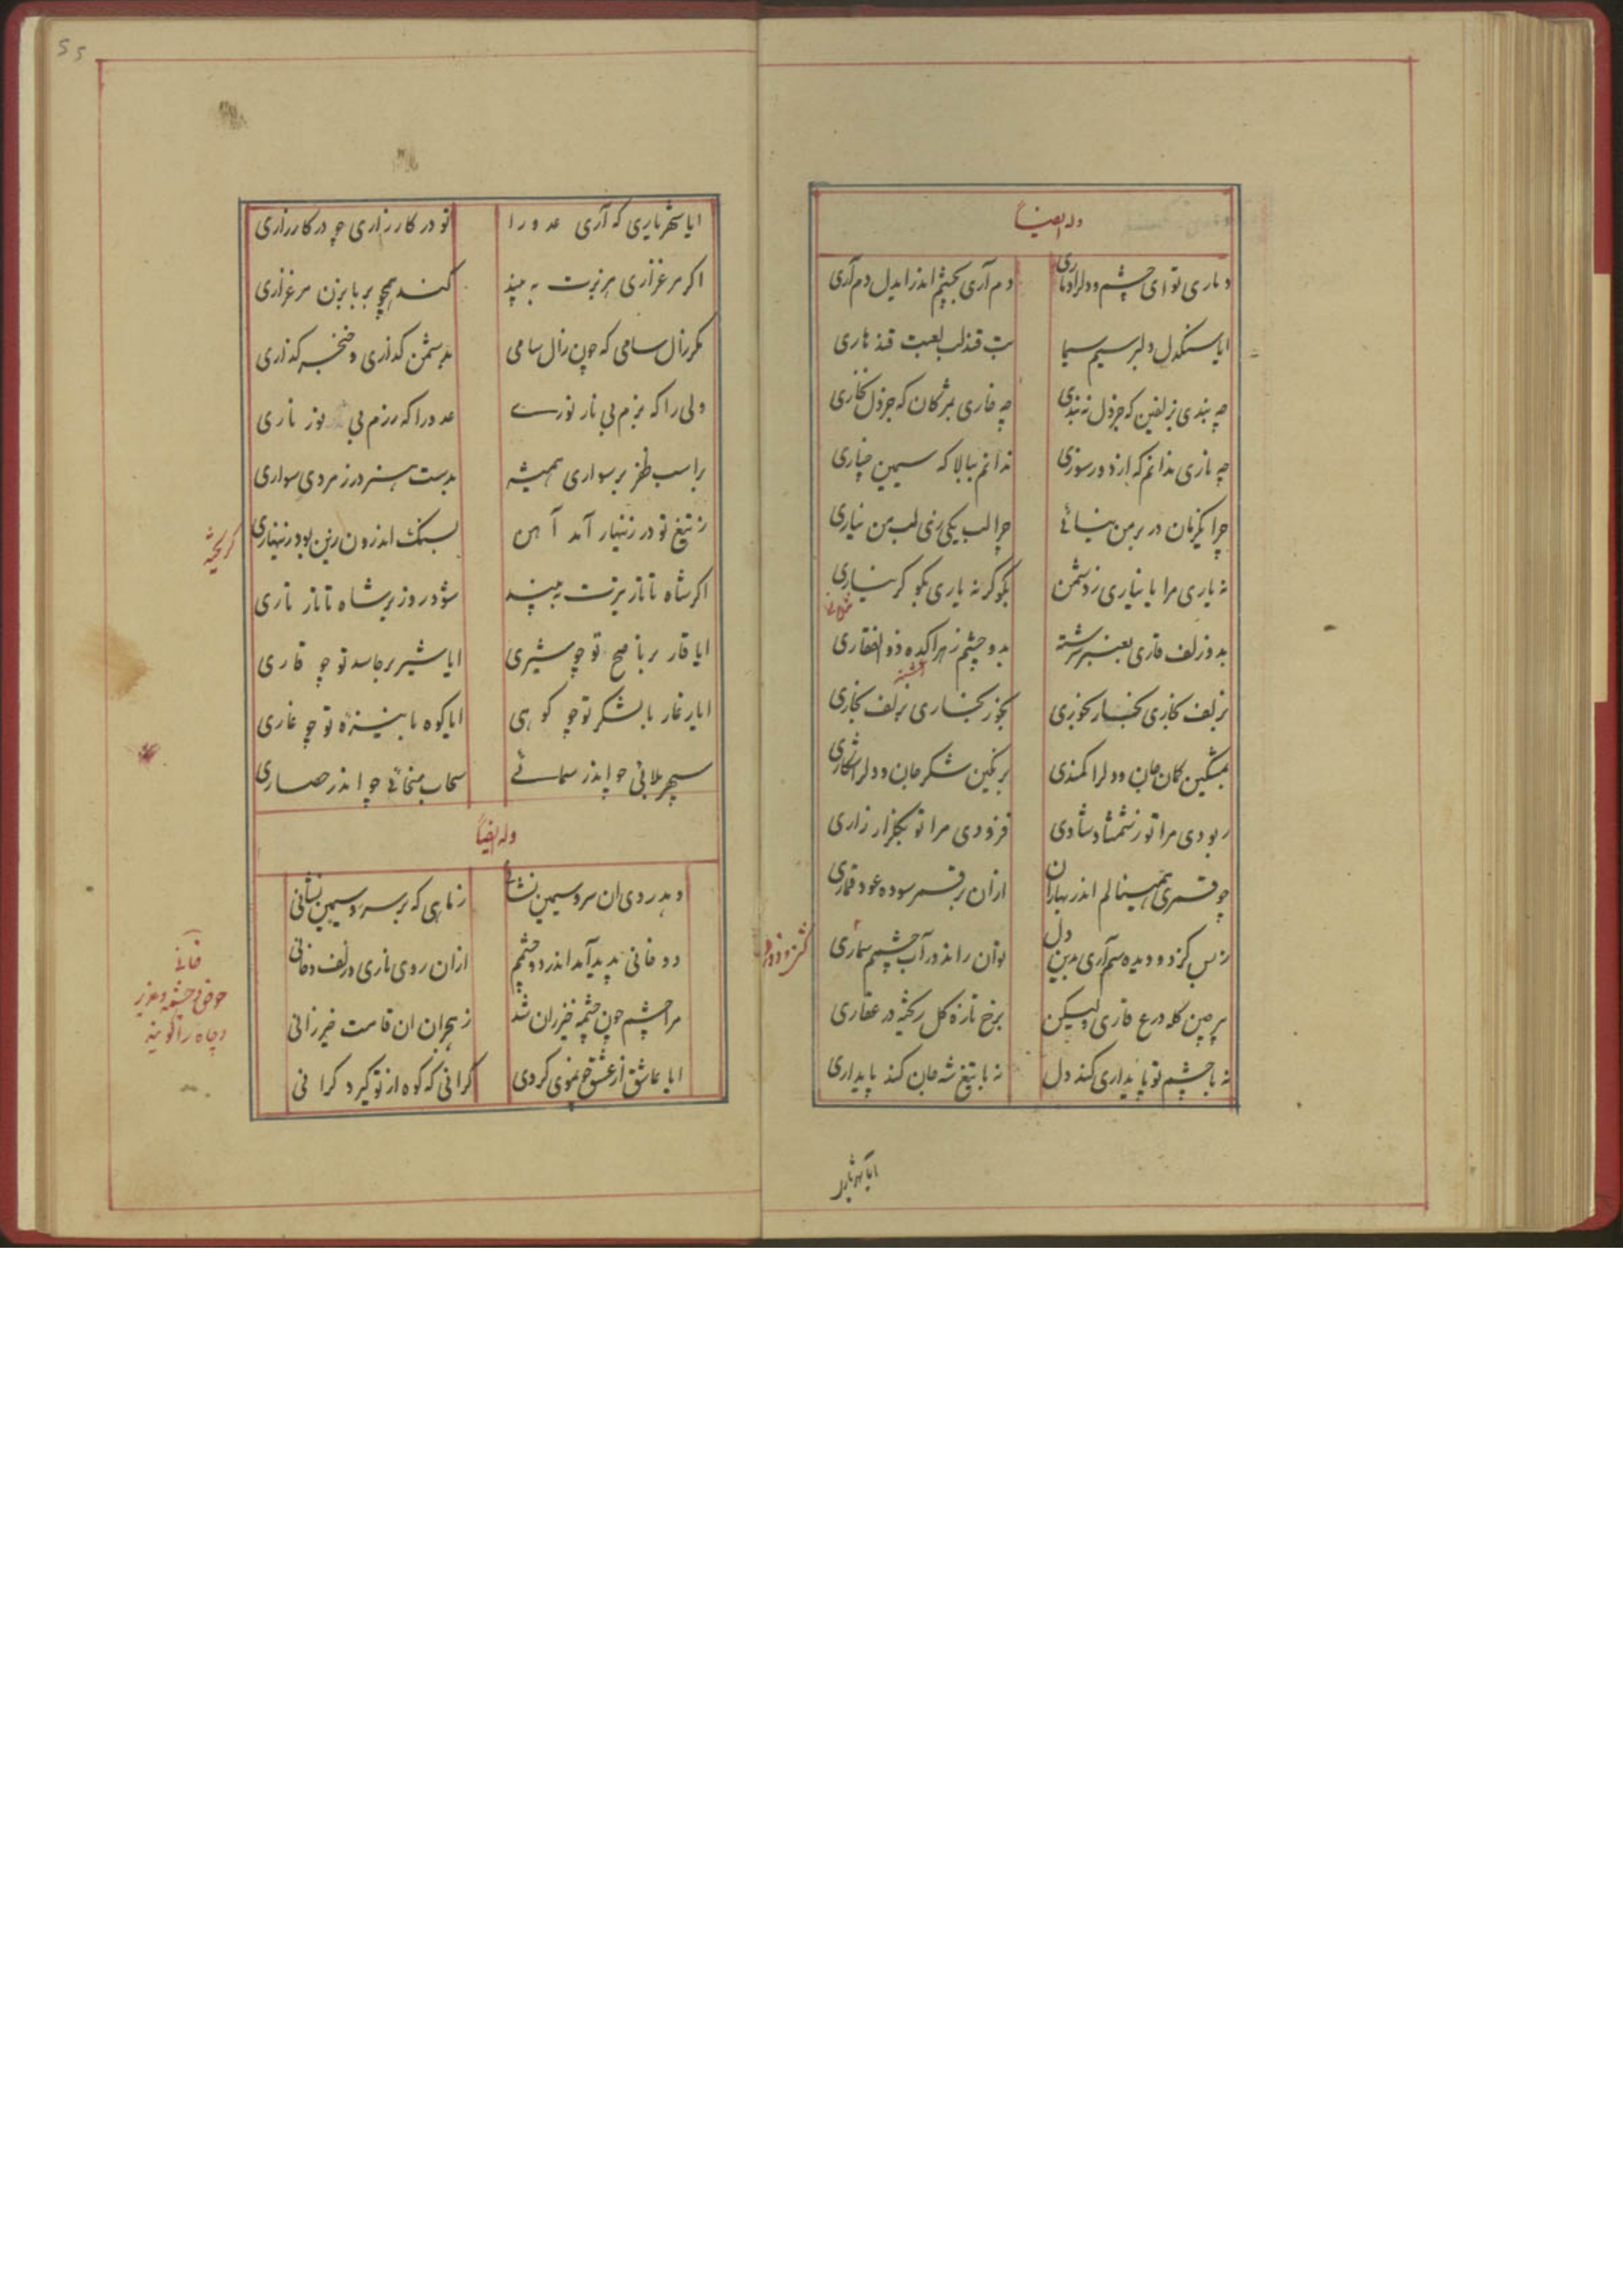 وله ایضاً
دماری تو ای چشم و دلرا دماری
دم آری بچشم اندر ایدل دم آری
ایا سنکدل دلبر سیم سیما
بت قندلب لعبت قندهاری
چه بندی بزلفین که جز دل نه بندی
چه خاری بمژکان که جز دل نخاری
چه نازی ندانم که از دور سوزی
ندانم ببالا که سیمین چناری
چرا یکزمان در بر من نیائی
چرا لب یکی بر لب من نیاری
نه یاری مرا یا نیاری ز دشمن
بکو کر نه یاری بکو کر نیاری
بدو زلف قاری بعنبر سرشته
بدو چشم زهر اکده ذو الفقاری
بزلف بخاری
بمشکین کمان جان و دلرا کمندی
برنکین شکر جان و دلرا شکاری
ربودی مرا تو ز شمشاد شادی
فزودی مرا تو بکلزار زاری
چو قمری همینالم اندر بهاران
ازان بر قمر سوده عود قماری
ز بس کز دو دیده سم آری بدین دل
توان راند در آب چشمم سماری
بر چین کله درع قاری ولیکن
برخ تازه کل ریخته در عقاری
نه با چشم تو پایداری کند دل
نه با تیغ شه جان کند پایداری
ایا شهریاری
ایا شهریاری که آری عدو را
تو در کارزاری چو در کارزاری
اکر مرغزاری هزبرت به بیند
کند همچو بر بابزن مرغ زاری
مکر زال سامی که چون زال سامی
بدشمن کدازی و خنجر کذاری
ولی را که بزم بی نار نوری
عدو را که رزم بی نور ناری
بر اسب ظفر بر سواری همیشه
بدست هنر در ز مردی سواری
ز تیغ تو در زینهار آمد آهن
بسنک اندرون زین بود زینهاری
کریخته
اکر شاه تاتار تیرت به بیند
شود روز بر شاه تاتار تاری
ایا قار بر ناصح تو چو شیری
ایا شیر بر حاسد تو چو قاری
ایا غار با لشکر تو چو کوهی
ایا کوه با نیزه تو چو غاری
سپهر بلائی چو اندر
سحاب سخائی چو اندر حصاری
وله ایضاً
دهد روی ان سرو سیمین نشانی
ز ماهی که بر سرو سیمین نشانی
دو خانی پدید آمد اندر دو چشمم
ازان روی ناری و زلف دخانی
خانی
حوض و چشمه
و چاه را کویند
مرا چشم چون چشمه خیزران شد
ز هجران ان قامت خیزرانی
ایا عاشق از عشق
کرانی که کوه از تو کیرد کرانی
55